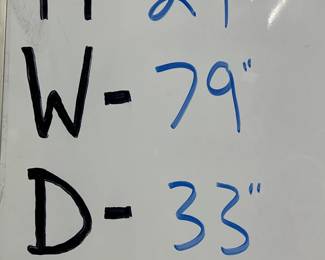 W- 79"
D- 33"